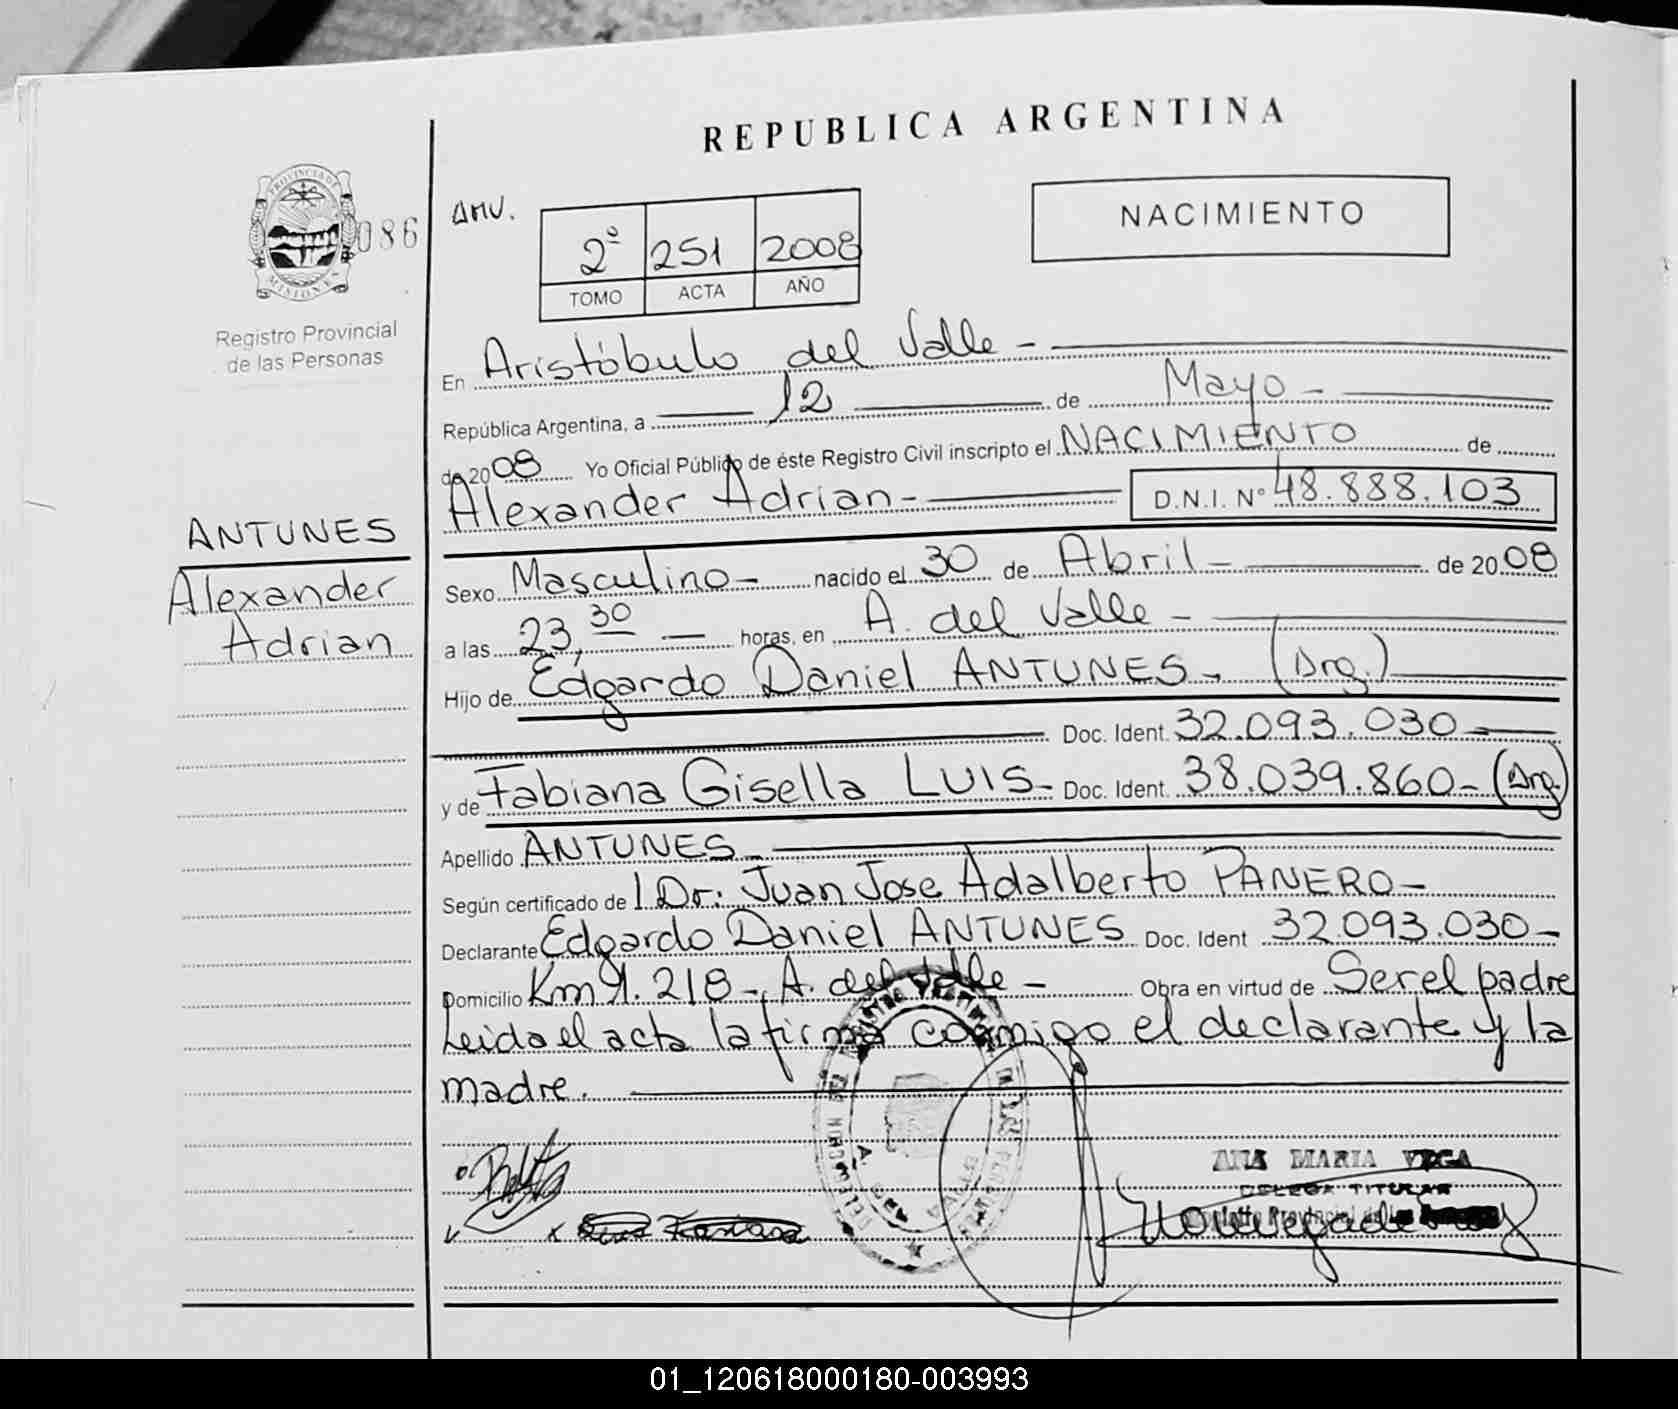 REPUBLICA ARGENTINA
PROVINCIA DE
MISIONES
086
Registro Provincial
de las Personas
AMV.
2º 251 2008
TOMO ACTA AÑO
NACIMIENTO
En Aristóbulo del Valle -
República Argentina, a 12 de Mayo -
de 2008 Yo Oficial Público de éste Registro Civil inscripto el NACIMIENTO de
Alexander Adrian - D.N.I. Nº 48.888.103
ANTUNES
Alexander
Adrian
Sexo Masculino - nacido el 30 de Abril - de 2008
a las 23,30 horas, en A. del Valle -
Hijo de Edgardo Daniel ANTUNES - (Arg.)
Doc. Ident. 32.093.030 -
y de Fabiana Gisella LUIS - Doc. Ident. 38.039.860 - (Arg.)
Apellido ANTUNES -
Según certificado de l Dr: Juan Jose Adalberto PANERO -
Declarante Edgardo Daniel ANTUNES Doc. Ident 32.093.030 -
Domicilio Km 9. 218 -, A. del Valle - Obra en virtud de Ser el padre
Leida el acta la firma conmigo el declarante y la
madre.
ANA MARIA VEGA
DELEGA TITULAR
Provincial de las
01_120618000180-003993